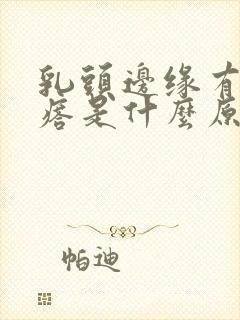 乳頭邊缘有
痞是什麼原
帕迪